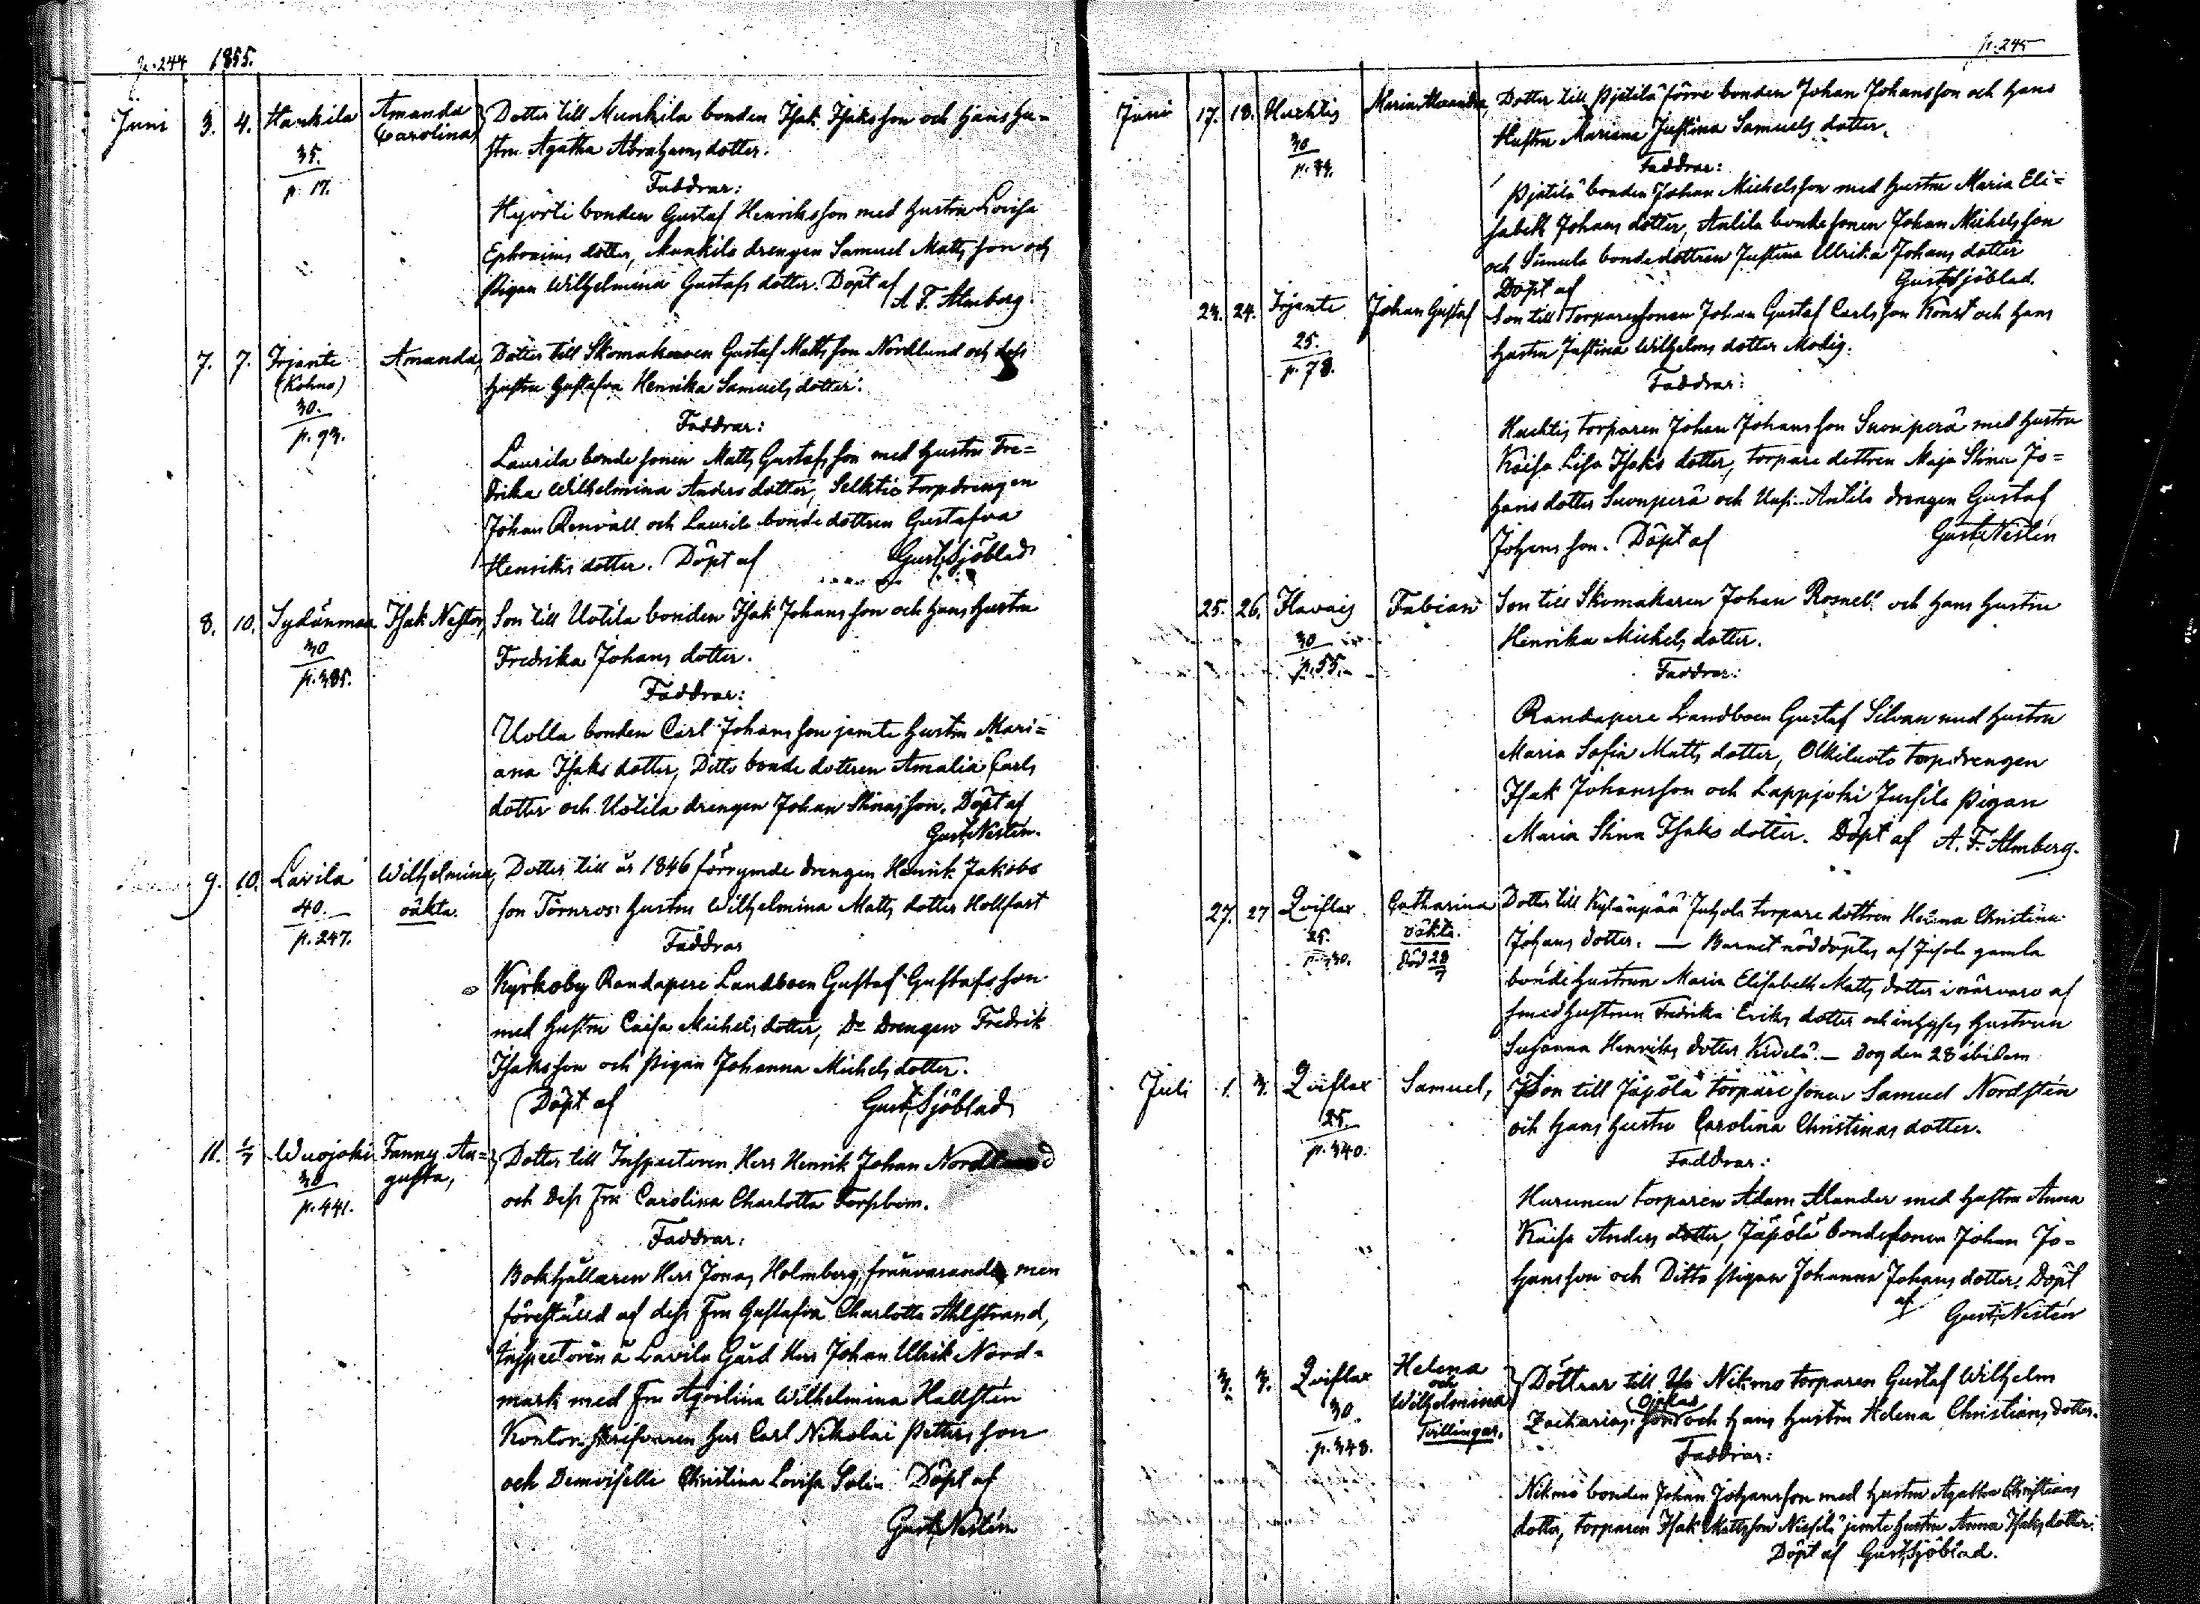 p. 244 1855.
Juni 3. 4. Harkila Amanda Dotter till Munkila bonden Isak Isaksson och hans hu-
35. Carolina, stru Agatha Abrahams dotter.
p. 17. Faddrar:
Hyörti bonden Gustaf Henriksson med hustru Lovisa
Ephraims dotter, Munkila drengen Samuel Matts son och
Pigan Wilhelmina Gustafs dotter. Döpt af
A. F. Almberg
7. 7. Irjante Amanda, Dotter till Skomakaren Gustaf Matts son Nordlund och dess
(Kohma) hustru Gustafva Henrika Samuels dotter.
30. Faddrar:
p. 93.
Laurila bonde sonen Matts Gustafs son med hustru Fre-
drika Wilhelmina Anders dotter, torpdrengen
Johan Renvall och Laurila bonde dottren Gustafva
Henriks dotter. Döpt af Gust. Sjöblad
8. 10. Sydänmaa Isak Nestor, Son till Uotila bonden Isak Johans son och hans hustru
30 Fredrika Johans dotter.
p. 385. Faddrar:
Uolla bonden Carl Johans son jemte hustru Mari-
ana Isaks dotter, Ditto bonde dottren Amalia Carls
dotter och Uotila drengen Johan Stinas son. Döpt af
Gust. Nestén.
9. 10. Lavila Wilhelmina, Dotter till år 1846 förrymde drengen Henrik Jakobs
40. oäkta. son Törnros hustru Wilhelmina Matts dotter Hollfast
p. 247. Faddrar
Kyrkoby Randapere Landboen Gustaf Gustafsson
med hustru Caisa Michels dotter, Do Drengen Fredrik
Isaksson och pigan Johanna Michels dotter.
Döpt af Gust. Sjöblad
11. 1/7 Wuojoki Fanny Au- Dotter till Inspectoren Herr Henrik Johan Nordlund
30 gusta, och dess Fru Carolina Charlotta Forsbom.
p. 441. Faddrar:
Bokhållaren Herr Jonas Holmberg, frånvarande men
föreställd af dess Fru Gustafva Charlotta Ahlstrand,
Inspectoren å Lavila Gård Herr Johan Ulrik Nord-
mark med Fru Wilhelmina Hallstén
Kontors skrifvaren Herr Carl Nikolai Petters son
och Demoiselle Christina Lovisa Salin Döpt af
Gust. Nestén
p. 245
Juni 17. 18. Huchtis Maria Alexandra, Dotter till Pjetilä förre bonden Johan Johansson och hans
30 Hustru Mariana Justina Samuels dotter.
p. 84. Faddrar:
Pjetilä bonden Johan Michelsson med hustru Maria Eli-
sabeth Johans dotter, Antila bonde sonen Johan Michelsson
och Simula bondedottren Justina Ulrika Johans dotter
Döpt af Gust. Sjöblad.
23. 24. Irjante Johan Gustaf Son till Torparesonen Johan Gustaf Carls son Konst och hans
25. hustru Justina Wilhelms dotter Modig.
p. 78. Faddrar:
Huchtis torparen Johan Johansson Suonperä med hustru
Kaisa Lisa Isaks dotter, torpare dottren Maja Stina Jo-
hans dotter Suonperä och Antila drengen Gustaf
Johansson. Döpt af Gust. Nestén
25. 26. Havais Fabian Son till Skomakaren Johan Rosnell och hans hustru
30 Henrika Michels dotter.
p. 55. Faddrar:
Randapere Landboen Gustaf Silvan med hustru
Maria Sofia Matts dotter, Olkiluoto torpdrengen
Isak Johansson och Lappjoki Jussila pigan
Maria Stina Isaks dotter. Döpt af A. F. Almberg.
27. 27 Qviflax Catharina Dotter till Kylänpää Juhola torpare dottren Helena Christina
25. oäkta. Johans dotter. — Barnet nöddöptes af Juhola gamla
död 28 bondehustrun Maria Elisabeth Matts dotter i närvaro af
smedhustrun Fredrika Eriks dotter och inhyses hustrun
Susanna Henriks dotter Kivelä. — Dog den 28 ibidem
Juli 1. 3. Qviflax Samuel, Son till Jäpölä torpare sonen Samuel Nordstén
25. och hans hustru Carolina Christinas dotter.
p. 340. Faddrar:
Hurunen torparen Adam Alander med hustru Anna
Kaisa Anders dotter, Jäpölä bondesonen Johan Jo-
hansson och Ditto pigan Johanna Johans dotter. Döpt
af Gust. Nestén
3. 3. Qviflax Helena Döttrar till Nikmo torparen Gustaf Wilhelm
30. och Wilhelmina Zacharias son och hans hustru Helena Christians dotter.
p. 348. Tvillingar. Faddrar:
Nikmo bonden Johan Johansson med hustru Agatha Christians
dotter, torparen Isak Mattsson jemte hustru Anna Isaks dotter.
Döpt af Gust. Sjöblad.